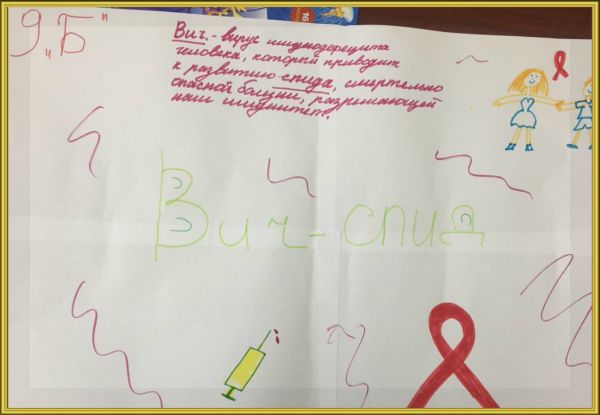 9 „Б"
Вич - вирус иммунодефецита
человека, который приводит
к развитию спида, смертельно
опасной болезни, разрушающей
наш иммунитет.
Вич-спид
16